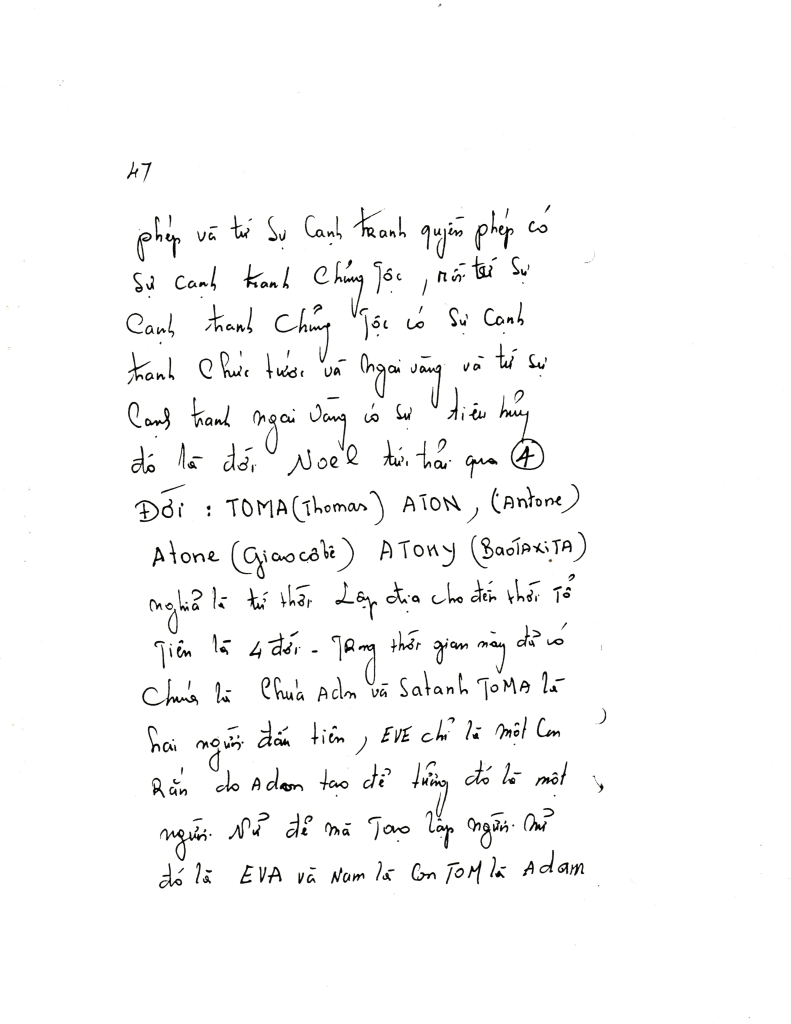 47
phép và từ Sự Cạnh tranh quyền phép có
Sự cạnh tranh Chủng Tộc, rồi từ Sự
Cạnh tranh Chủng Tộc có Sự Cạnh
tranh Chức tước và Ngai vàng và từ sự
Cạnh tranh ngai Vàng có sự tiêu hủy
đó là đời Noel tức trải qua 4
Đời : TOMA (Thomas) ATON, (Antone)
Atone (Giacôbê) ATONY (BaoTAXITA)
nghĩa là từ thời Lập địa cho đến thời Tổ
Tiên là 4 đời - Trong thời gian này đã có
Chúa là Chúa Adn và Satanh TOMA là
hai người đầu tiên, EVE chỉ là một Con
Rắn do Adam tạo để tưởng đó là một
người Nữ để mà Tạo lập người nữ
đó là EVA và Nam là Con TOM là Adam